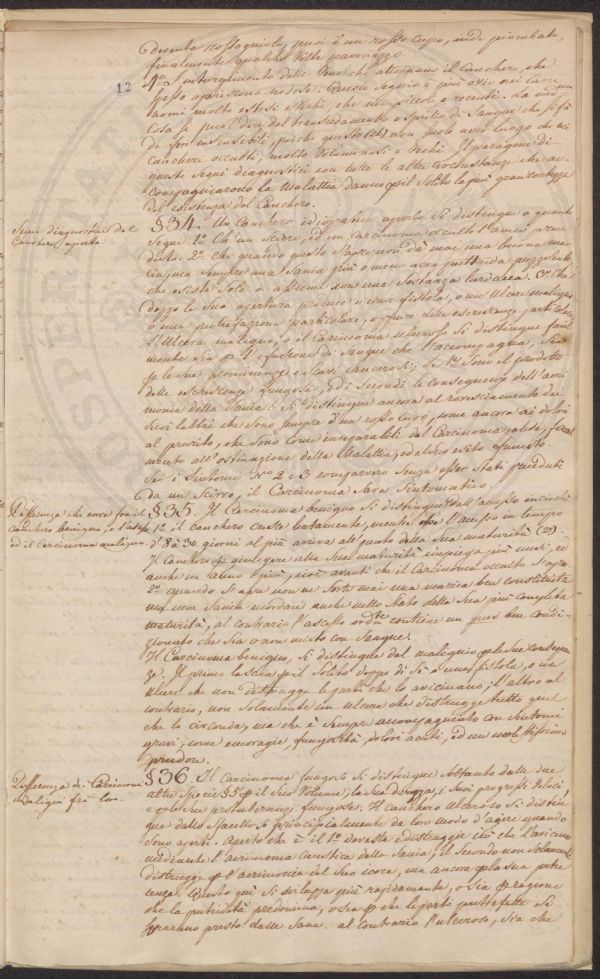 diventa rossognolo, puoi d'un rosso cupo, indi piombato,
finalmente qualche volta pavonazzo.
12
4° L'inturgimento delle Vene che attorniano il Canchero, che
spesso appariscono nodose. Questo segno è più ovvio nei Carci-
nomi molto estesi e Vechi, che nei piccoli e recenti. La
cosa si può dire del transudamento e spillio di Sangue che si fà
da fori insensibili, poiche questo non suole aver luogo che nei
Cancheri occulti, molto voluminosi e Vechi. Il paragone di
questi Segni diagnostici con tutte le altre circostanze che ac-
compagnarono la Malattia danno p il Solito la più gran certezza
dell'esistenza del Canchero.
Segni diagnostici del
Canchero aperto.
§ 34. Un Canchero idiopatico aperto si distingue a quanto
Segue. 1° Ch'un Scirro, ed un carcinoma occulto l'anno prece-
duto. 2° che quando questo s'apre non dà mai una buona ma-
rcia, ma sempre una Sania più o meno acra putrida puzzolente
che esiste Sola o assieme con una Sostanza lardacea. 3° Che
doppo la Sua apertura produce o una fistola, o un Ulcere maligno
o una putrefazione particolare, oppure delle escrescenze particolari.
L'Ulcera maligna, o il Carcinoma ulceroso si distingue facil-
mente sia p l'effusione di Sangue che l'accompagna, sia
p le sue prominenze e scavi cancerosi; Le 1e Sono il prodotto
delle escrescenze fungose, ed i Secondi le conseguenze dell'acri-
monia della Sania. Si distingue ancora al rovesciamento dei
Suoi labbri che sono sempre d'un rosso cupo, come ancora ai dolori
al prurito, che sono come inseparabili dal Carcinoma,
all'ostinazione della Malattia, ed al suo esito funesto.
Se i Sintomi No 2 e 3 comparvero Senza esser Stati preceduti
da un Scirro, il Carcinoma Sara Sintomatico.
Differenza che corre frà il
canchero benigno, e l'ascesso,
ed il carcinoma maligno.
§ 35. Il Carcinoma benigno si distingue dall'ascesso in ciochè
1° il canchero cresce lentamente, mentre l'ascesso in tempo
d'8 à 30 giorni al più arriva al punto della Sua maturità (27).
Il Canchero p giungere alla Sua maturità impiega più mesi, ed
anche un'anno e più, cioè avanti che il Carcinoma occulto s'apra.
2° quando si apre non ne Sorte mai una marcia ben constituita
ma una Sanie mordace anche nello Stato della Sua più completa
maturità, al contrario l'ascesso contiene un pus ben condi-
zionato che sia o non misto con Sangue.
Il Carcinoma benigno, si distingue dal maligno p le Sue conseguen-
ze. Il primo lascia p il Solito doppo di Sè o una fistola, o un
ulcere che non distrugge le parti che lo avicinano; l'altro al
contrario, non Solamente un ulcera che distrugge tutto quel
che la circonda, ma che è Sempre accompagnata con Sintomi
gravi, come emoragie, fungosità, dolori acuti, ed un molestissimo
prudore.
Differenza de Carcinomi
maligni frà loro.
§ 36. Il Carcinoma fungoso si distingue Soltanto dalle due
altre Specie § 5° p il Suo Volume, la Sua durezza, i Suoi progressi Veloci,
e colle Sue protuberanze fungose. Il Canchero Ulceroso si distin-
gue dallo Sfacello, principalmente da loro modo d'agire quando
Sono aperti. Aperto che è il 1° devasta e distrugge ciò che l'avicina
mediante l'acrimonia caustica della Sania, il Secondo non Solamente
distrugge p l'acrimonia del Suo icore, ma ancora p la sua putre-
scenza. Questo qui si sviluppa più rapidamente, o sia p ragione
che la putridità predomina, o sia p che le parti putrefatte si
Sparano presto dalle Sane. al contrario l'ulceroso, sia che